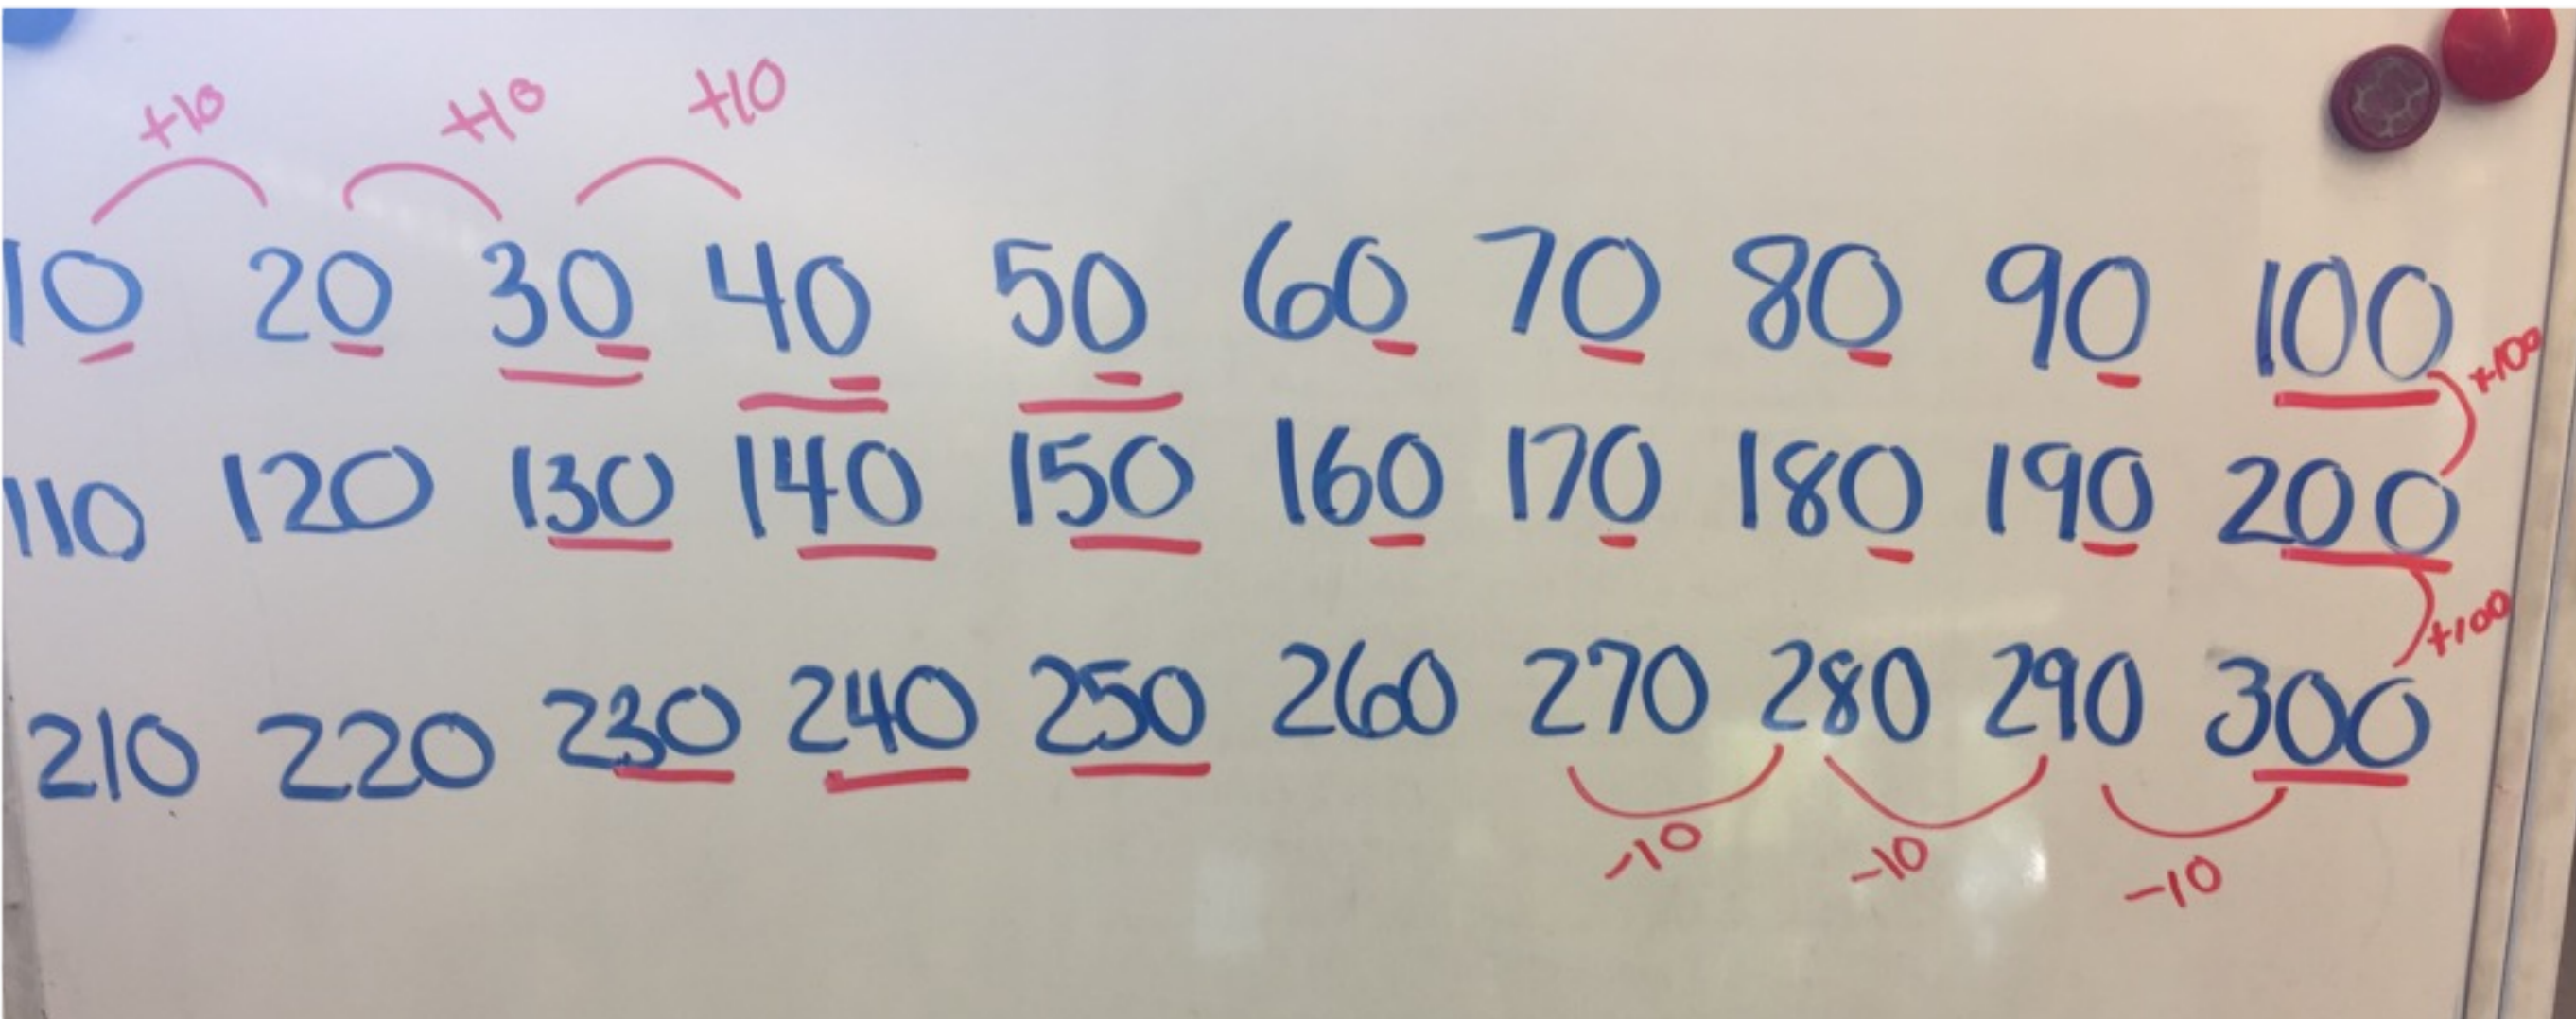 +10 +10 +10
10 20 30 40 50 60 70 80 90 100
+100
110 120 130 140 150 160 170 180 190 200
+100
210 220 230 240 250 260 270 280 290 300
-10 -10 -10